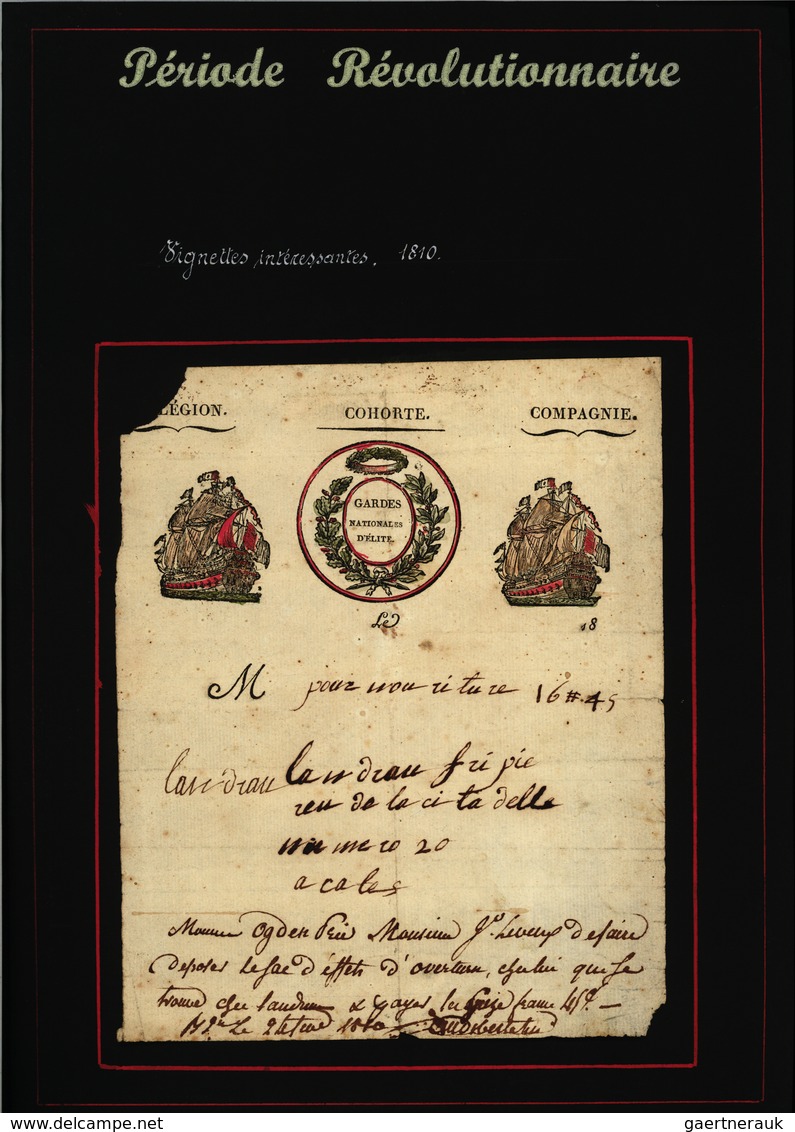 Période Révolutionnaire
Vignettes intéressantes. 1810.
LÉGION. COHORTE. COMPAGNIE.
GARDES
NATIONALES
D'ÉLITE.
Le 18
M pour nouriture 16 #. 45
landrau landrau fripie
reu de la citadelle
numero 20
a cales
Monsieur
deposer le sac d'effets d'overture, chez lui qui se
trouve chez landrau & payer les seize franc 45c. —
Le
delcampe.net
gaertnerauk